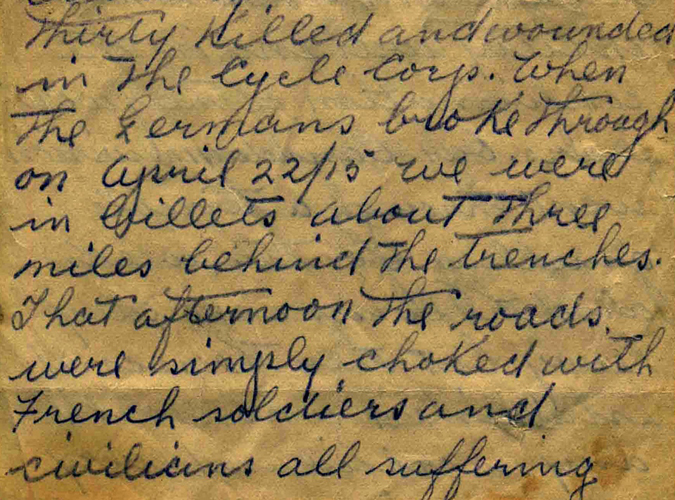 thirty killed and wounded
in the Cycle Corp. When
the Germans broke through
on April 22/15 we were
in billets about three
miles behind the trenches.
That afternoon the roads
were simply choked with
French soldiers and
civilians all suffering